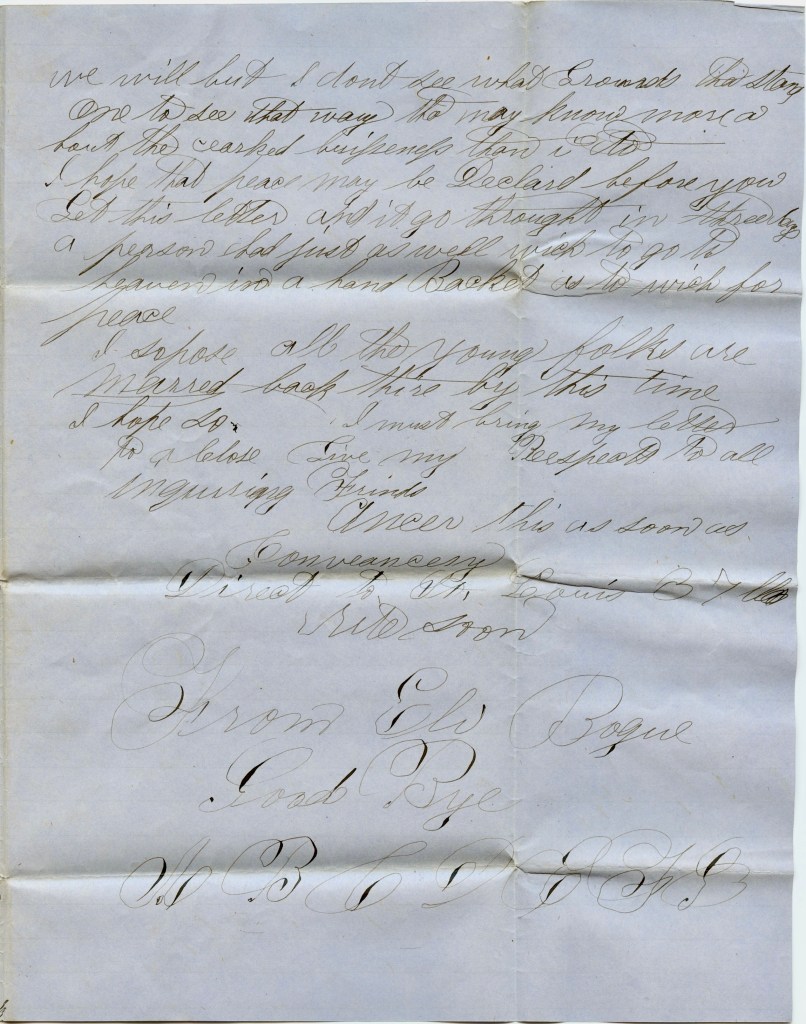 we will but I dont see what Grounds tha stay
one to see that way tha may know more a
bout the cearked buisseness than i do
I hope that peace may be Declard before you
Get this letter and it go throught in three
a person had just as well wich to go to
heaven in a hand Backet as to wich for
peace
I sopose all the young folks are
Marred back thire by this time
I hope so. I must bring my letter
to a Close Give my Respeact to all
inquiring Frinds
Ancer this as soon as
Conveancesy
Direct to St. Louis B 7
Rite soon
From Eli Bogue
Good Bye
A B C D E F G